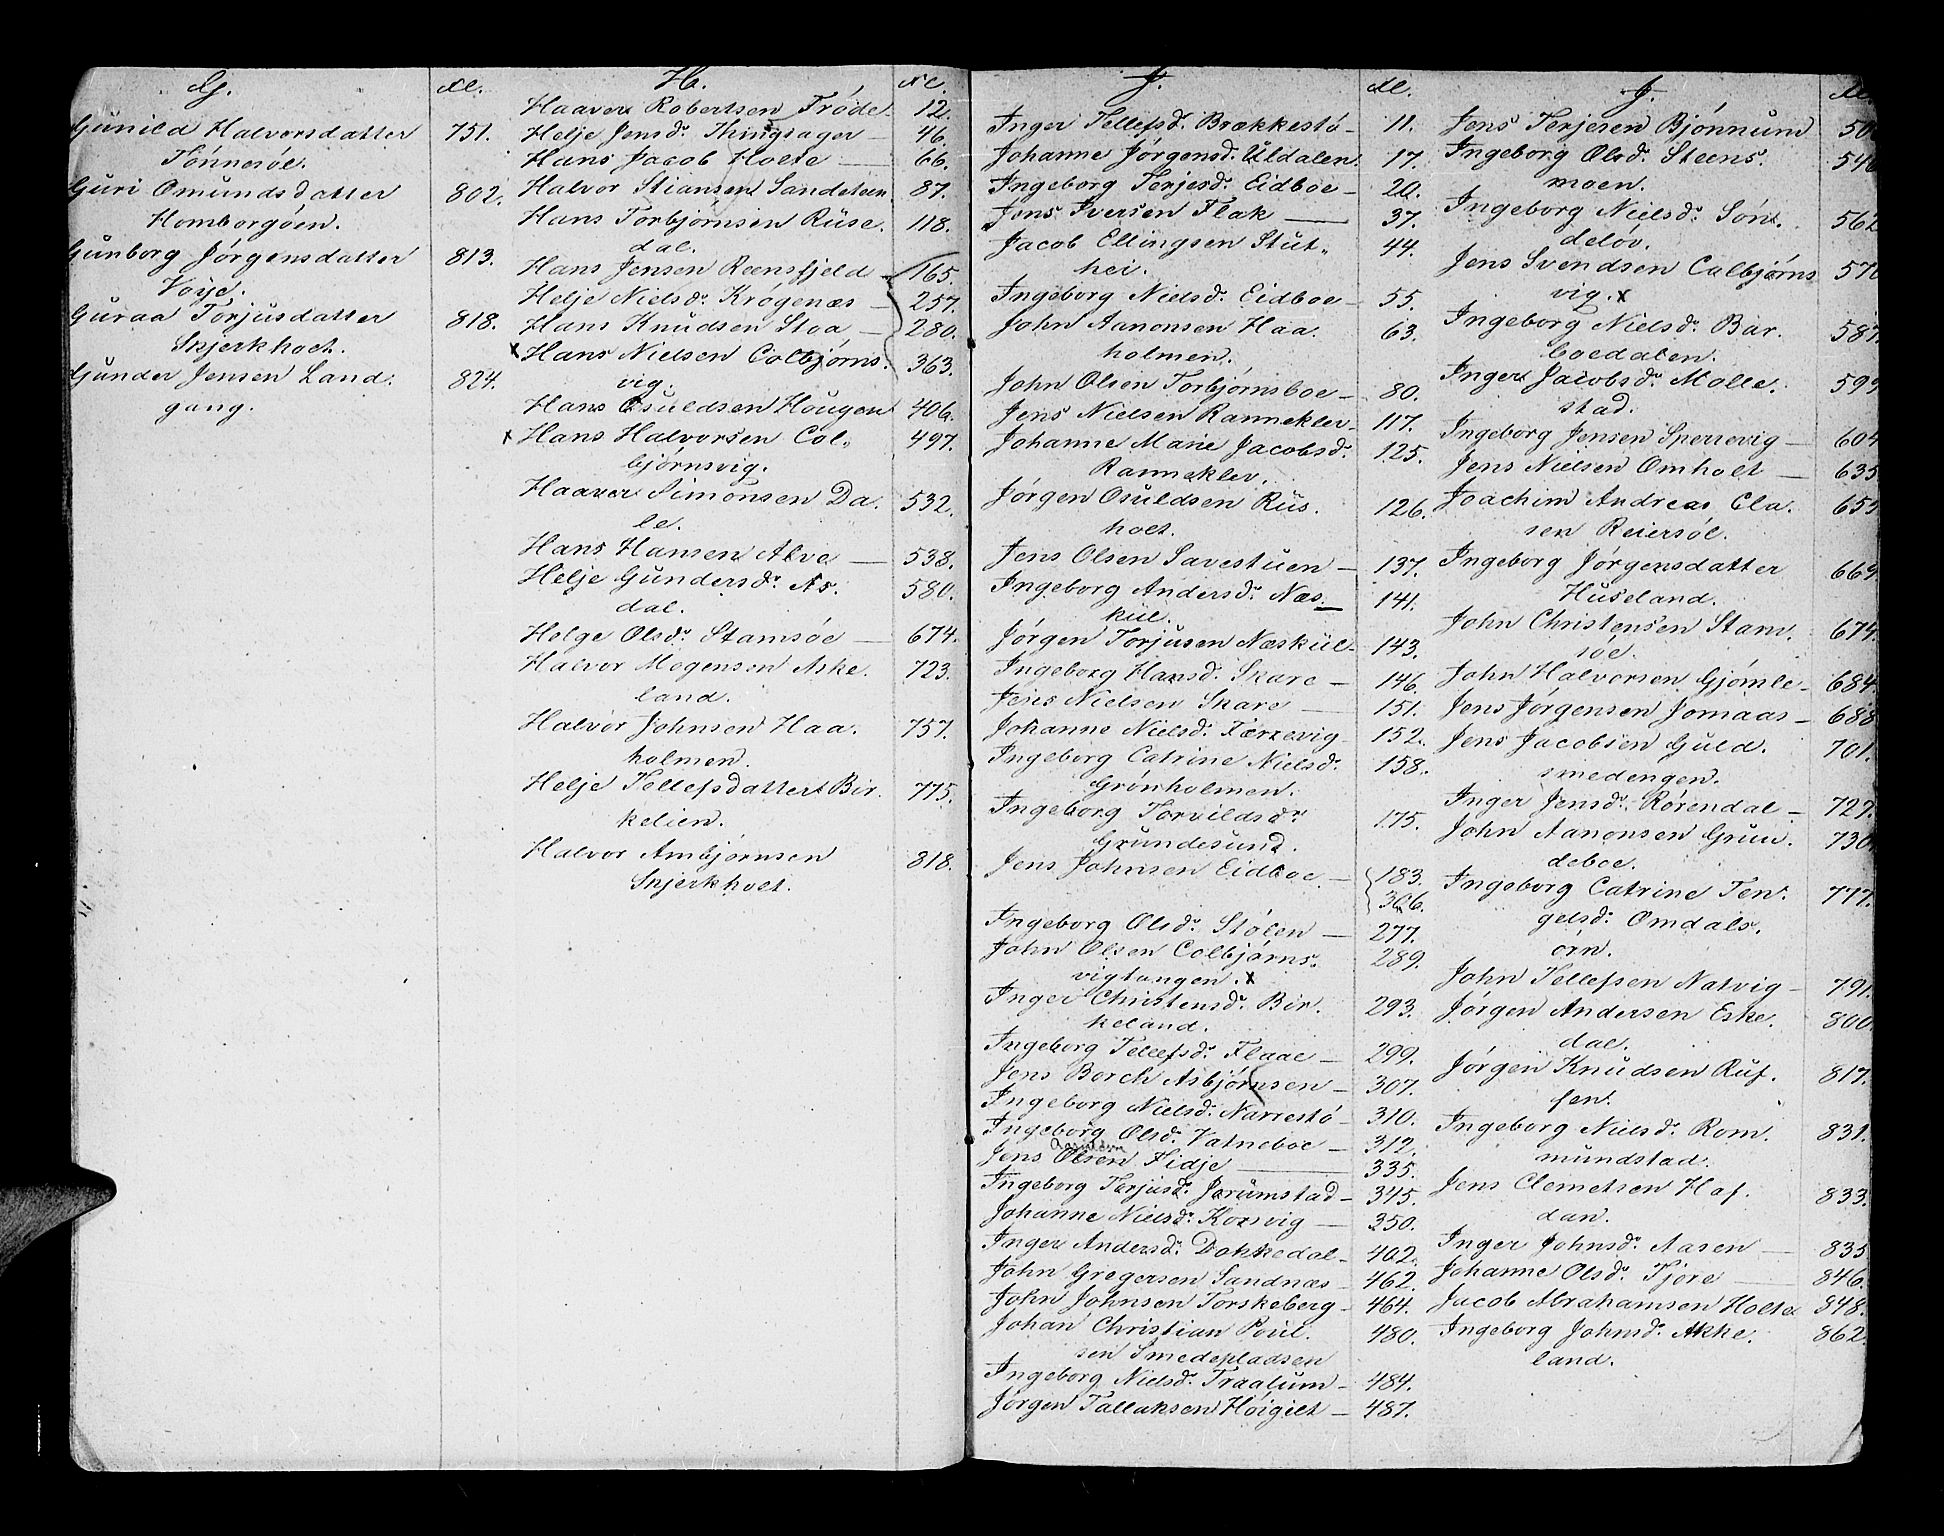 G.
Gunild Halvorsdatter 751.
Tönnesöl.
Guri Omundsdatter 802.
Homborgöen.
Gunborg Jörgensdatter 813.
Vöye.
Guraa Torjusdatter 818.
Skjerkholt.
Gunder Jensen Land. 824.
gang.
H.
Haaver Robertsen Tröde. 12.
Helje Jensdr. Thingsager 46.
Hans Jacob Holte — 66.
Halvor Stiansen Sandsteen 87.
Hans Torbjörnsen Ruse. 118.
dal.
Hans Jensen Reensfjeld - 165.
Helje Nielsdr. Krögenæs — 257.
Hans Knudsen Stoa — 280.
x Hans Nielsen Colbjörns. 363.
vig.
Hans Osuldsen Hougen 406.
x Hans Halvorsen Col„ 497.
björnsvig.
Haaver Simonsen Da. 532.
le.
Hans Hansen Alve — 538.
Helje Gundersdr. As. 580.
dal.
Helge Olsdr. Stamsöe — 674.
Halvor Mogensen Aske. 723.
land.
Halvor Johnsen Haa. 757.
holmen.
Helje Tellefsdatter Bir. 775.
kelien.
Halvor Ambjörnsen 818.
Skjerkholt.
J.
Inger Tellefsdr. Brækkestö - 11.
Johanne Jörgensdr. Uldalen. 17.
Ingeborg Terjesdr. Eidboe - 20.
Jens Iversen Flak — 37.
Jacob Ellingsen Stut„ 44.
hei.
Ingeborg Nielsdr. Eidboe - 55.
John Aanonsen Haa. 63.
holmen.
John Olsen Torbjörnsboe - 80.
Jens Nielsen Rannekler - 117.
Johanne Marie Jacobsdr. 125.
Ranneklev.
Jörgen Osuldsen Rus. 126.
holt.
Jens Olsen Savestuen - 137.
Ingeborg Andersdr. Næs 141.
kül.
Jörgen Torjusen Næskül - 143.
Ingeborg Hansdr. Skare - 146.
Jens Nielsen Skare — 151.
Johanne Nielsdr. Færevig - 152.
Ingeborg Catrine Nielsdr. 158.
Grönholmen.
Ingeborg Torvildsdr. 175.
Grundesund.
Jens Johnsen Eidboe - 183.
306.
Ingeborg Olsdr. Stölen — 277.
John Olsen Colbjörns. 289.
vigtangen. x
Inger Christensdr. Bir. 293.
keland.
Ingeborg Tellefsdr. Flaae — 299.
Jens Borch Asbjörnsen - 307.
Ingeborg Nielsdr. Narrestö - 310.
Ingeborg Olsdr. Vatneboe - 312.
Jens Olsen Fidje — 335.
Ingeborg Terjusdr. Jorumstad - 345.
Johanne Nielsdr. Korsvig — 350.
Inger Andersdr. Dokkedal - 402.
John Gregersen Sandnæs - 462.
John Johnsen Torskeberg - 464.
Johan Christian Poul. 480.
sen Smedepladsen
Ingeborg Nielsdr. Traalum - 484.
Jörgen Tallaksen Höigilt — 487.
J.
Jens Terjesen Bjönnum 50
Ingeborg Olsdr. Steens. 546
moen.
Ingeborg Nielsdr. Sön. 562
delöv.
Jens Svendsen Colbjörns 570
vig. x
Ingeborg Nielsdr. Bar. 587.
boedalen.
Inger Jacobsdr. Molle. 599
stad.
Ingeborg Jensen Sperrevig — 604
Jens Nielsen Omholt — 635
Joachim Andreas Cla. 655
sen Reiersöl.
Ingeborg Jörgensdatter 669
Huseland.
John Christensen Stam. 674.
söe.
John Halvorsen Gjömle - 684.
Jens Jörgensen Jomaas - 688
Jens Jacobsen Guld. 701.
smedengen.
Inger Jensdr. Rörendal - 727.
John Aanonsen Grun. 730
deboe.
Ingeborg Catrine Ten. 777.
gelsdr. Omdals.
örn.
John Tellefsen Natvig - 791.
Jörgen Andersen Eske. 800
dal.
Jörgen Knudsen Ruf. 817.
fen.
Ingeborg Nielsdr. Rom. 831.
mundstad.
Jens Clemetsen Haf. 833.
dan.
Inger Johnsdr. Aasen — 835
Johanne Olsdr. Tjore — 846.
Jacob Abrahamsen Holte 848.
Ingeborg Johnsdr. Akke. 862.
land.